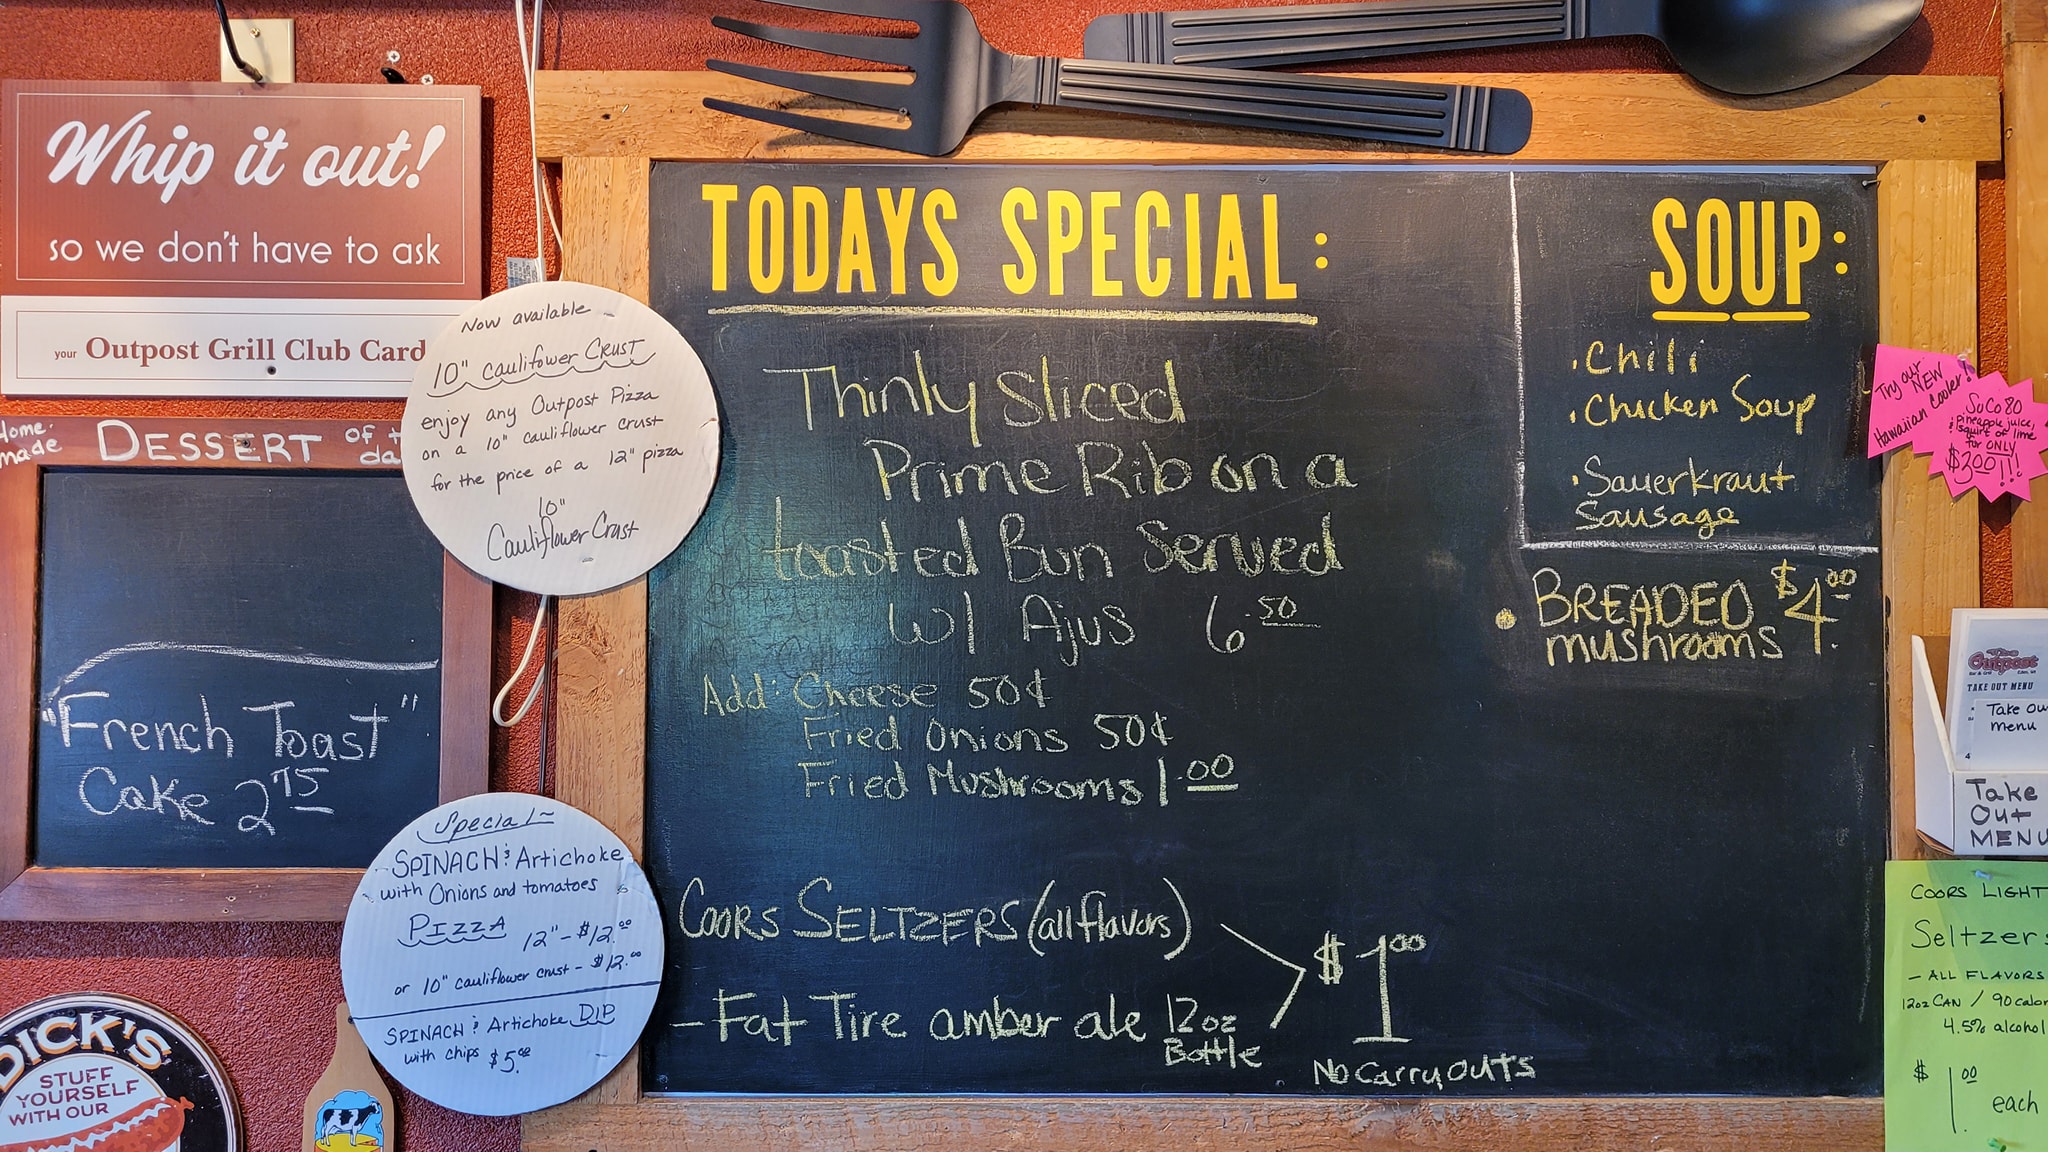 Whip it out!
so we don't have to ask
your Outpost Grill Club Card
Home
made
DESSERT
of
da
"French Toast"
Cake 2 75
Now available
10" cauliflower CRUST
enjoy any Outpost Pizza
on a 10" cauliflower crust
for the price of a 12" pizza
10"
Cauliflower Crust
Special~
SPINACH & Artichoke
with Onions and tomatoes
PIZZA
12" - $12.00
or 10" cauliflower crust - $12.00
SPINACH & Artichoke DIP
with chips $5.00
DICK'S
STUFF
YOURSELF
WITH OUR
TODAYS SPECIAL:
Thinly Sliced
Prime Rib on a
toasted Bun Served
w/ Ajus 6.50
Add: Cheese 50¢
Fried Onions 50¢
Fried Mushrooms 1.00
COORS SELTZERS (all flavors)
- Fat Tire amber ale 12oz
Bottle
$1.00
No Carry outs
SOUP:
• Chili
• Chicken Soup
• Sauerkraut
Sausage
• BREADED $4.00
mushrooms
Try our
NEW
Hawaiian Cooler!
SoCo 80
& Pineapple juice,
squirt of lime
for ONLY
$3.00!!!
The
Outpost
Bar & Grill
TAKE OUT MENU
Take Ou
menu
4
Take
Out
MENU
COORS LIGHT
Seltzers
- ALL FLAVORS
12oz CAN / 90 calor
4.5% alcohol
$1.00
each